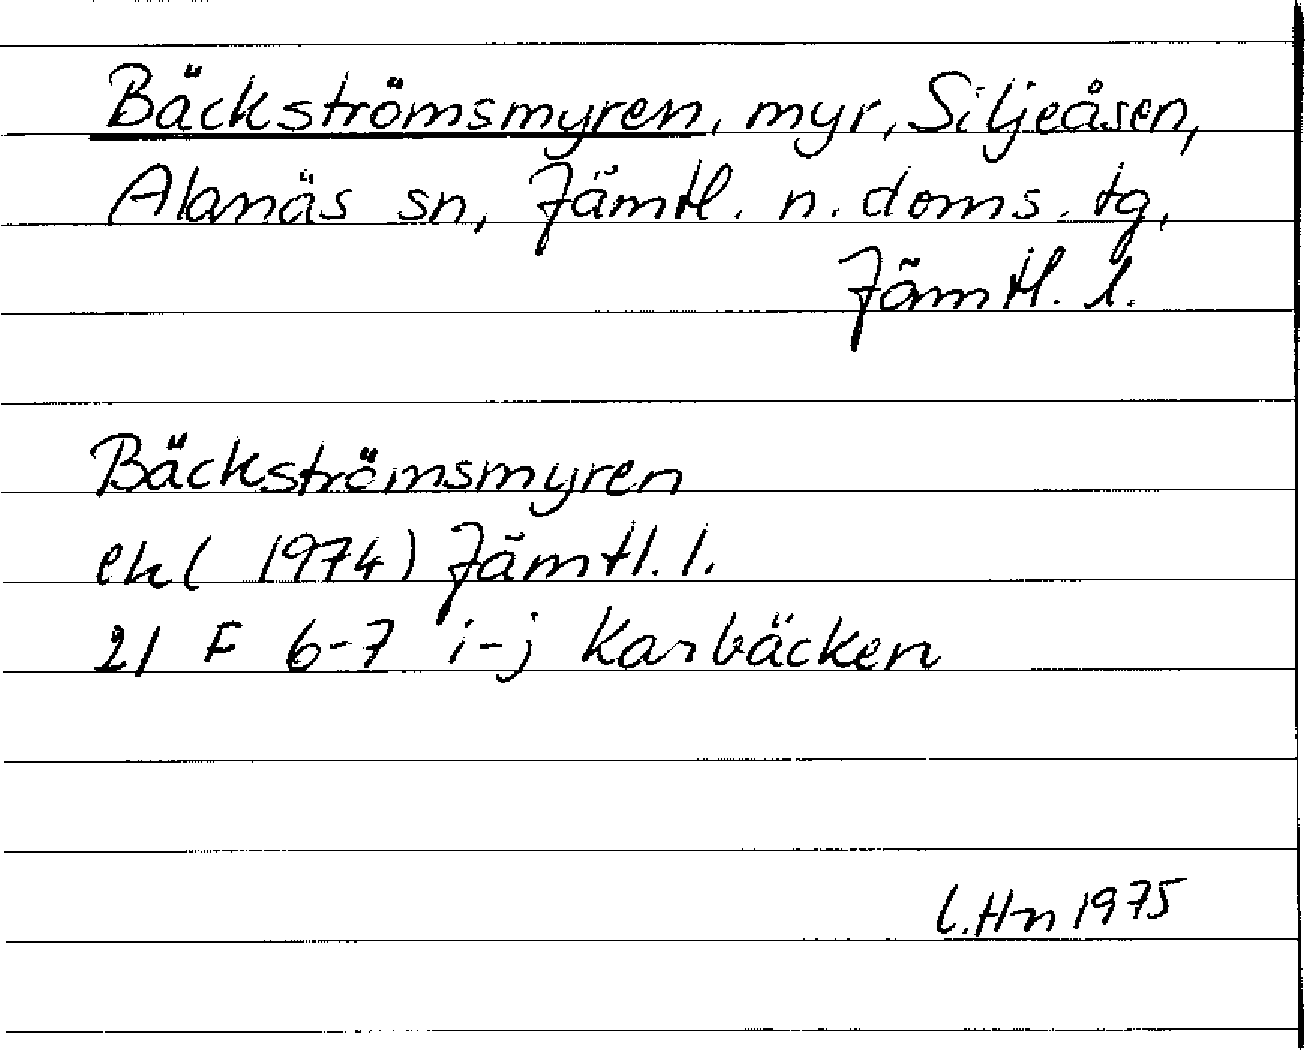 Bäckströmsmyren, myr, Siljeåsen,
Alanäs sn, Jämtl. n. doms. tg,
Jämtl. l.
Bäckströmsmyren
ek (1974) Jämtl. l.
21 F 6-7 i-j Karbäcken
L.Hn 1975